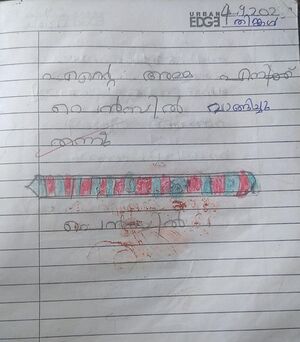 URBAN
EDGE 4.9.202
തിങ്കൾ
എന്റെ അമ്മ എനിക്ക്
പെൻസിൽ വാങ്ങിച്ചു
തന്നു
പെൻസിൽ